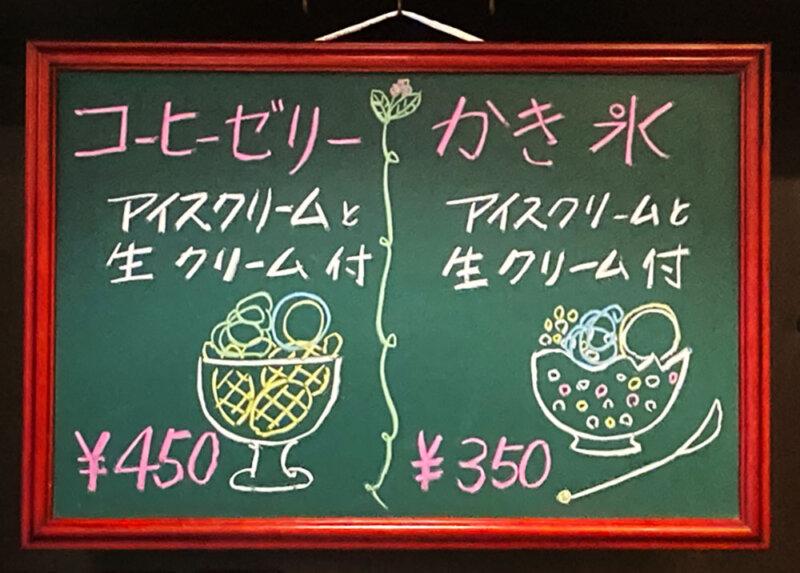 コーヒーゼリー
アイスクリームと
生クリーム付
¥450
かき氷
アイスクリームと
生クリーム付
¥350